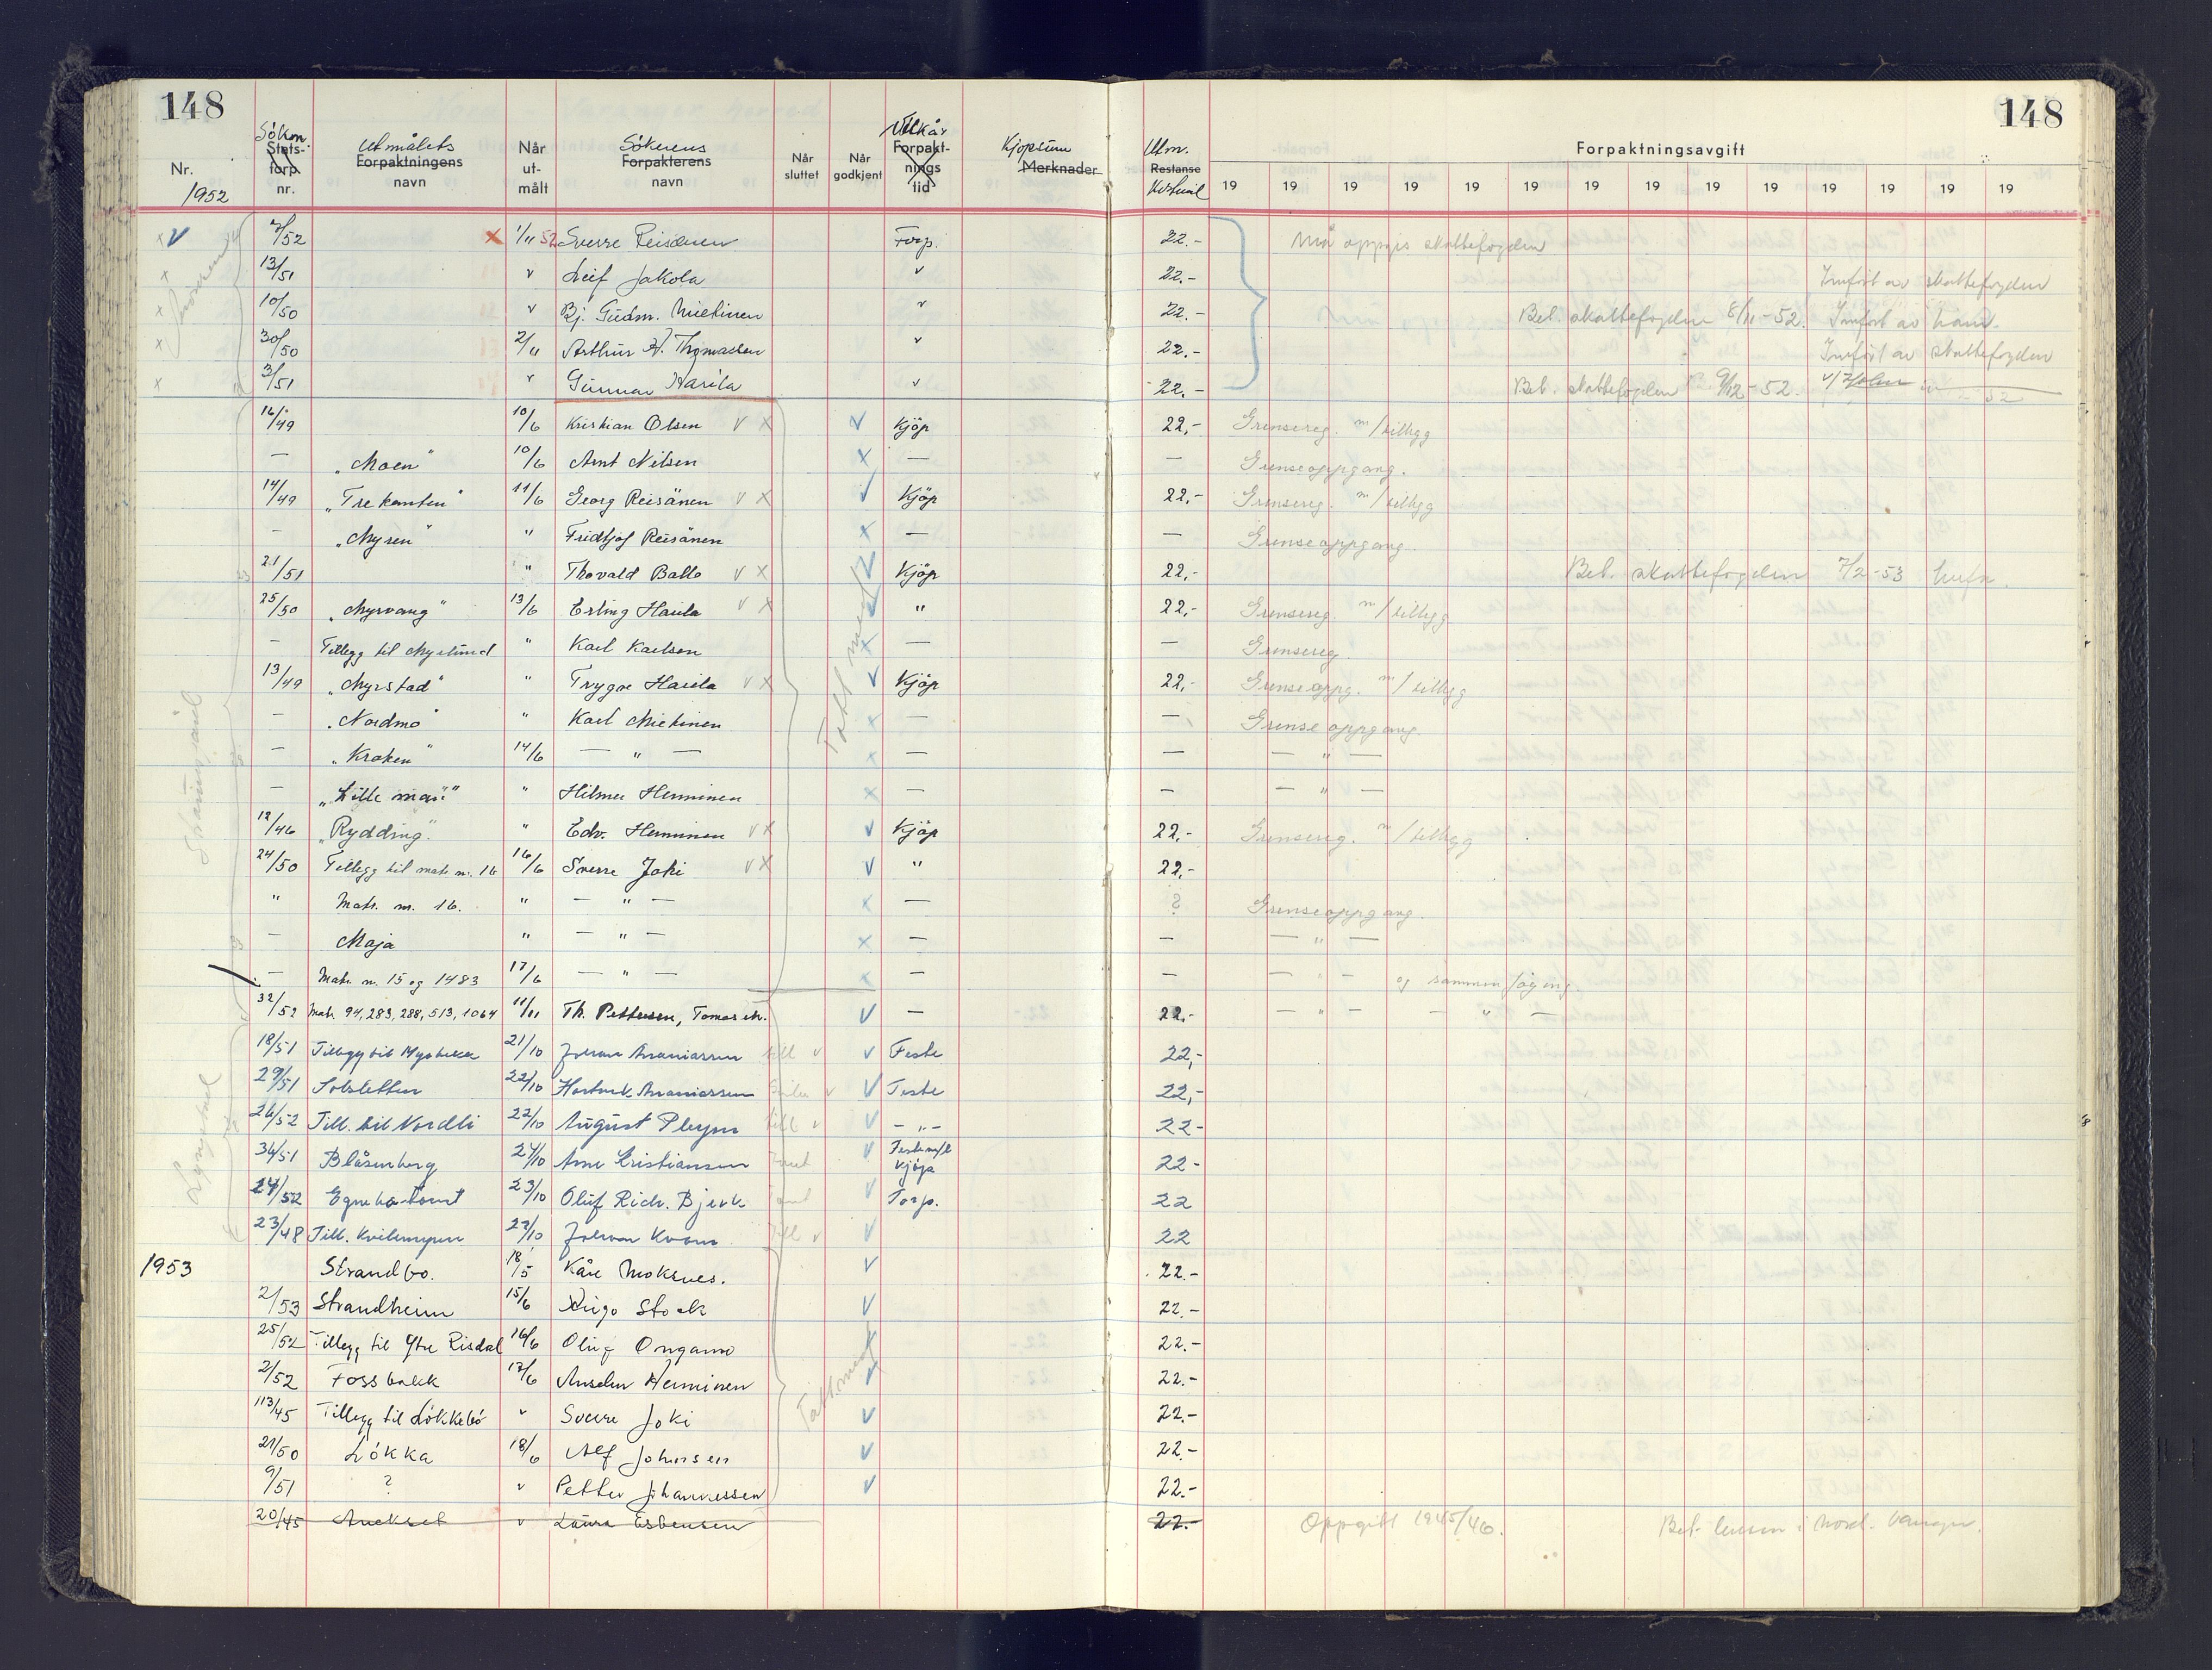 148 148
Nr. Søkn Stats-forp. nr. Utmålets Forpaktningens navn Når ut-målt Søkerens Forpakterens navn Når sluttet Når godkjent Vilkår Forpakt-nings tid Kjøpsum Merknader Utm. Restanse Kostnad Forpaktningsavgift
1952 19 19 19 19 19 19 19 19 19 19 19 19 19 19
7/52 1/11 52 Sverre Reisänen Forp. 22.- Må oppgis skattefogden
13/51 " Leif Jakola " 22.- Innført av skattefogden
10/50 " Bj. Gudm. Mietinen " 22.- Bet. skattefogden 8/11-52. Innført av ham.
30/50 2/11 Arthur H. Thomassen " 22.- Innført av skattefogden
3/51 " Gunnar Harila " 22.- Bet. skattefogden 9/12-52.
16/49 10/6 Kristian Olsen v x Kjöp 22,- Grensereg. m/tillegg
— „Moen" 10/6 Arnt Nilsen x — — Grenseoppgang.
14/49 „Trekanten" 11/6 Georg Reisänen v x Kjöp 22,- Grensereg. m/tillegg
— „Myren" " Fridtjof Reisänen x — — Grenseoppgang.
21/51 " Thorvald Ballo v x Kjöp 22,- Bet. skattefogden 7/2-53
25/50 „Myrvang" 13/6 Erling Harila v x " 22,- Grensereg. m/tillegg
— Tillegg til Myrlund " Karl Karlsen x — — Grensereg.
13/49 „Myrstad" " Trygve Harila v x Kjöp 22,- Grenseoppg. m/tillegg
— „Nordmo" " Karl Mietinen x — — Grense oppgang
— „Kroken" 14/6 — " — x — — — " —
— „Lille mari" " Hilmer Henninen x — — — " —
12/46 „Rydding". " Edv. Henninen v x Kjöp 22,- Grensereg. m/tillegg
24/50 Tillegg til matr. nr. 16 16/6 Sverre Joki v x " 22,-
" Matr. nr. 16. " — " — x — ? Grenseoppgang.
— Maja " — " — x — — — " —
— Matr. nr. 15 og 1483 17/6 — " — x — — — " — og sammenføying.
32/52 Matr. 94, 283, 288, 513, 1064 11/11 Th. Pettersen, Tomas — 22.- — " — — " —
18/51 Tillegg til 21/10 Johan Ananiassen Feste 22,-
29/51 Solsletten 22/10 Hartvik Ananiassen Feste 22,-
26/52 Till. til Nordli 22/10 August Pleym — " — 22-
36/51 Blåsenberg 24/10 Arne Kristiansen Feste m/l kjöp 22-
24/52 23/10 Oluf Rich. Bjerk Forp. 22
23/48 Till. Kvilemyren 22/10 Johan Kvam 22
1953 Strandbo. 18/5 Kåre Moksnes. 22.-
2/53 Strandheim 15/6 Hugo Stock 22.-
25/52 Tillegg til Ytre Risdal 16/6 Oluf Ongamo 22.-
2/52 Fossbakk 17/6 Anselm Henninen 22.-
113/45 Tillegg til Lökkebö " Sverre Joki 22.-
21/50 Lökka 18/6 Alf Johnsen 22.-
9/51 ? " Petter Johannessen 22.-
20/45 " Laura Esbensen 22.- Oppgitt 1945/46. Bet.